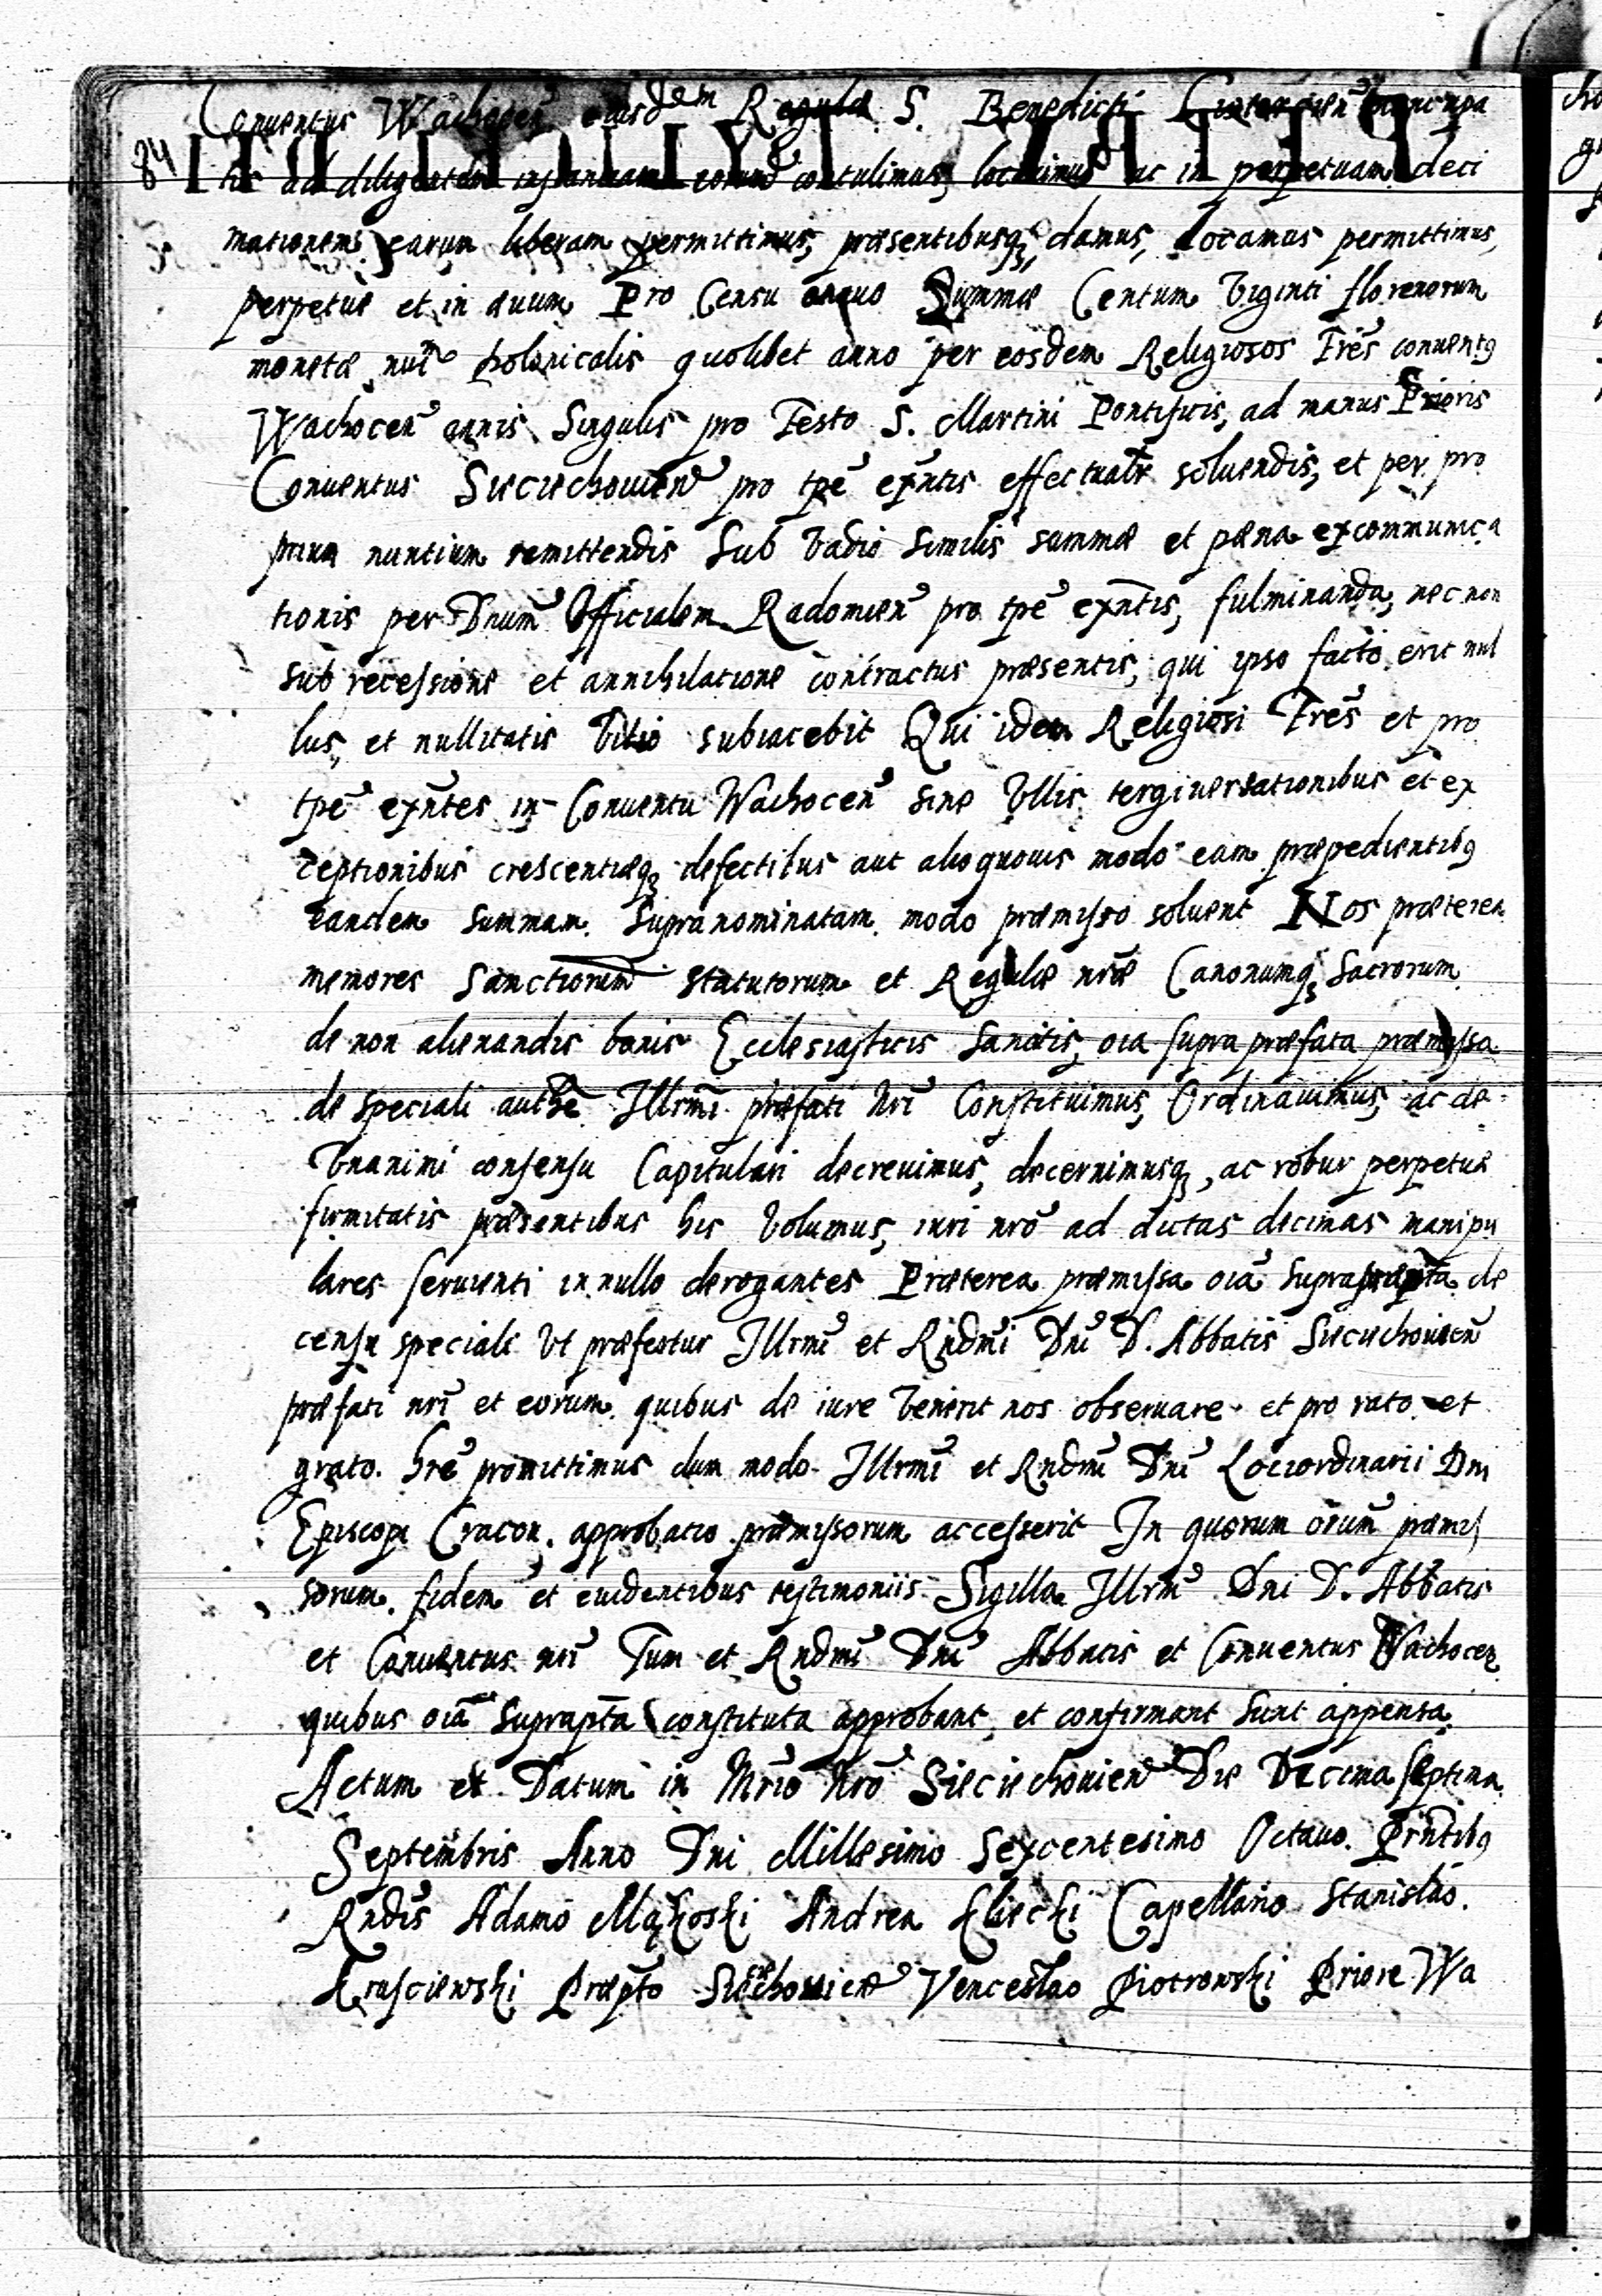 Conuentus Wachocen̄ eiusdem Regulæ S. Benedicti
84
tis ad diligentem instantiam eorund contulimus, locauimus ac in perpetuam deci
mationem earum liberam permittimus, præsentibusq; damus, locamus permittimus,
perpetue et in æuum Pro Censu annuo Summæ Centum Viginti florenorum
monetæ nūt polonicalis quolibet anno per eosdem Religiosos Frēs conuentꝰ
Wachocen̄ annis Singulis pro Festo S. Martini Pontificis, ad manus Prioris
Conuentus Sieciechouien̄ pro tpē exn̄tis effectualr̄ soluendis, et per pro
prium nuntium remittendis Sub Vadio Similis summæ et pæna excommunica
tionis per Dnum̄ Officialem Radomien̄ pro tpē exn̄tis, fulminanda, nec non
sub recessione et annihilatione contractus præsentis, qui ipso facto erit nul
lus, et nullitatis Vitio subiacebit Qui idem Religiosi Frēs et pro
tpē exn̄tes in Conuentu Wachocen̄ sine Vllis tergiuersationibus et ex
ceptionibus crescentiæq; defectibus aut alio quouis modo eam præpedientibꝰ
eandem summam supranominatam modo præmisso soluent Nos præterea
memores Sanctiorum statutorum et Regulæ nr̄æ Canonumq; Sacrorum
de non alienandis bonis Ecclesiasticis sancitis, oīa supra præfata præmissa
de speciali auth̄e Illrm̄i præfati Nr̄i Constituimus, Ordinauimus, ac de
Vnanimi consensu Capitulari decreuimus, decernimusq;, ac robur perpetuæ
firmitatis præsentibus his Volumus, iuri nr̄o ad dictas decimas manipu
lares seruienti in nullo derogantes Præterea præmissa oīa suprascripta de
censu speciali Vt præfertur Illrm̄i et Rndm̄i Dn̄i D. Abbatis Sieciechouien̄
præfati nr̄i et eorum quibus de iure Venerit nos obseruare et pro rato et
grato hr̄e promittimus dum modo Illrm̄i et Rndm̄i Dn̄i Lociordinarii Dni
Episcopi Cracon. approbatio præmissorum accesserit In quorum oīum præmis
sorum fidem et euidentibus testimoniis Sigilla Illrm̄i Dni D. Abbatis
et Conuentus nr̄i Tum et Rndm̄i Dn̄i Abbatis et Conuentus Wachocen
quibus oīa suprapt̄a constituta approbant et confirmant sunt appensa
Actum et Datum in Mr̄io Nr̄o Sieciechouien̄ Die Decima septima
Septembris Anno Dni Millesimo Sexcentesimo Octauo. Prn̄tibꝰ
Rndis̄ Adamo Andrea Capellano Stanislao
Krasciewski Præpt̄o Sieciechouien̄ Venceslao Piotrowski Priore Wa